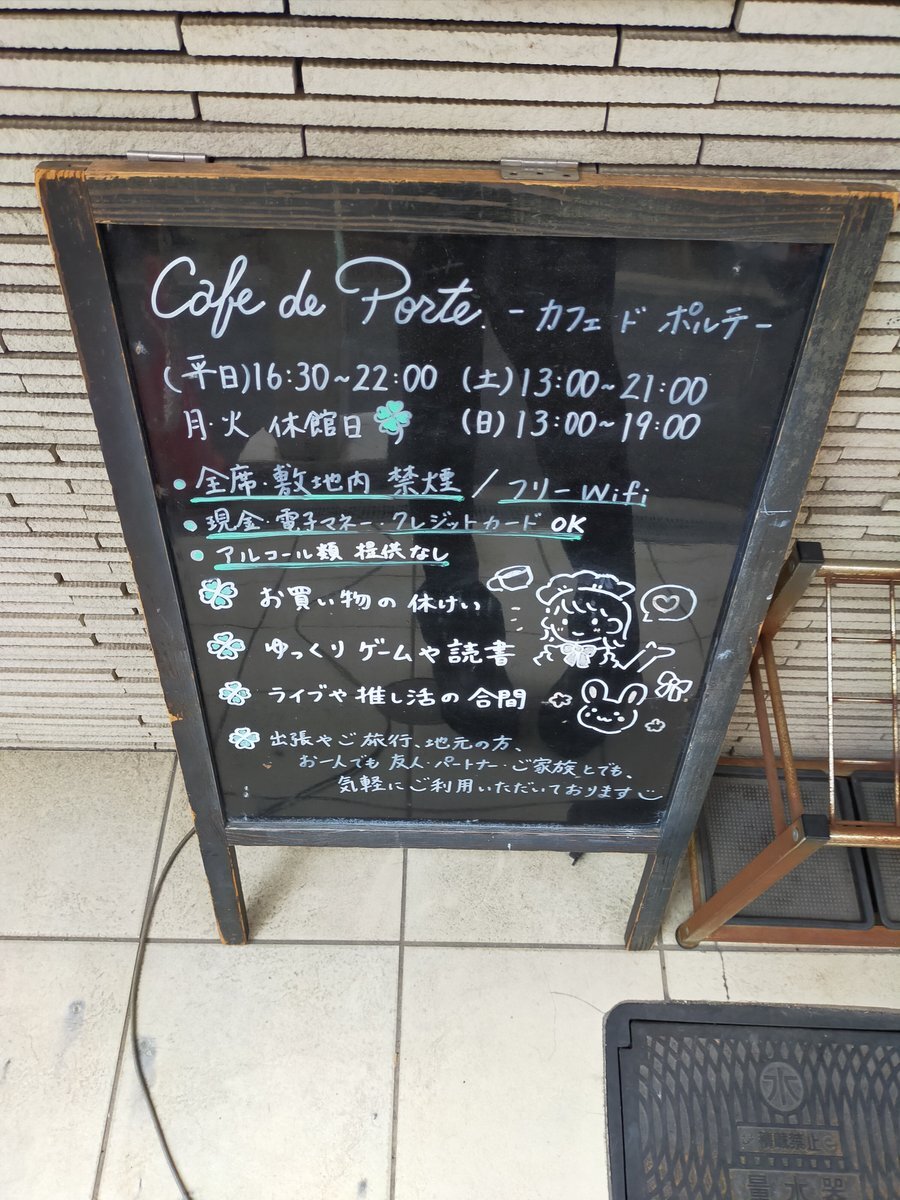 Cafe de Porte. -カフェ ド ポルテ-
(平日)16:30~22:00 (土)13:00~21:00
月・火 休館日 (日)13:00~19:00
・全席・敷地内 禁煙 / フリーWifi
・現金・電子マネー・クレジットカード OK
・アルコール類 提供なし
お買い物の休けい
ゆっくりゲームや読書
ライブや推し活の合間
出張やご旅行、地元の方、
お一人でも友人・パートナー・ご家族とでも、
気軽にご利用いただいております
積載禁止